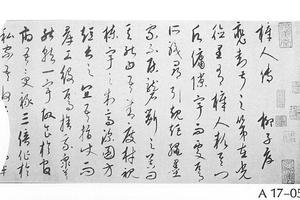 梓人傳 柳子厚
裴封叔之第在光
德里有梓人款其門
願傭隙宇而處焉
所職尋引規矩繩墨
家不居礱斲之器問
其能曰吾善度材視
棟宇之制高深圓方
短長之宜吾指使而
群工役焉捨我衆莫
能就一宇故食於官
府吾受祿三倍作於
私家吾收
A 17-05